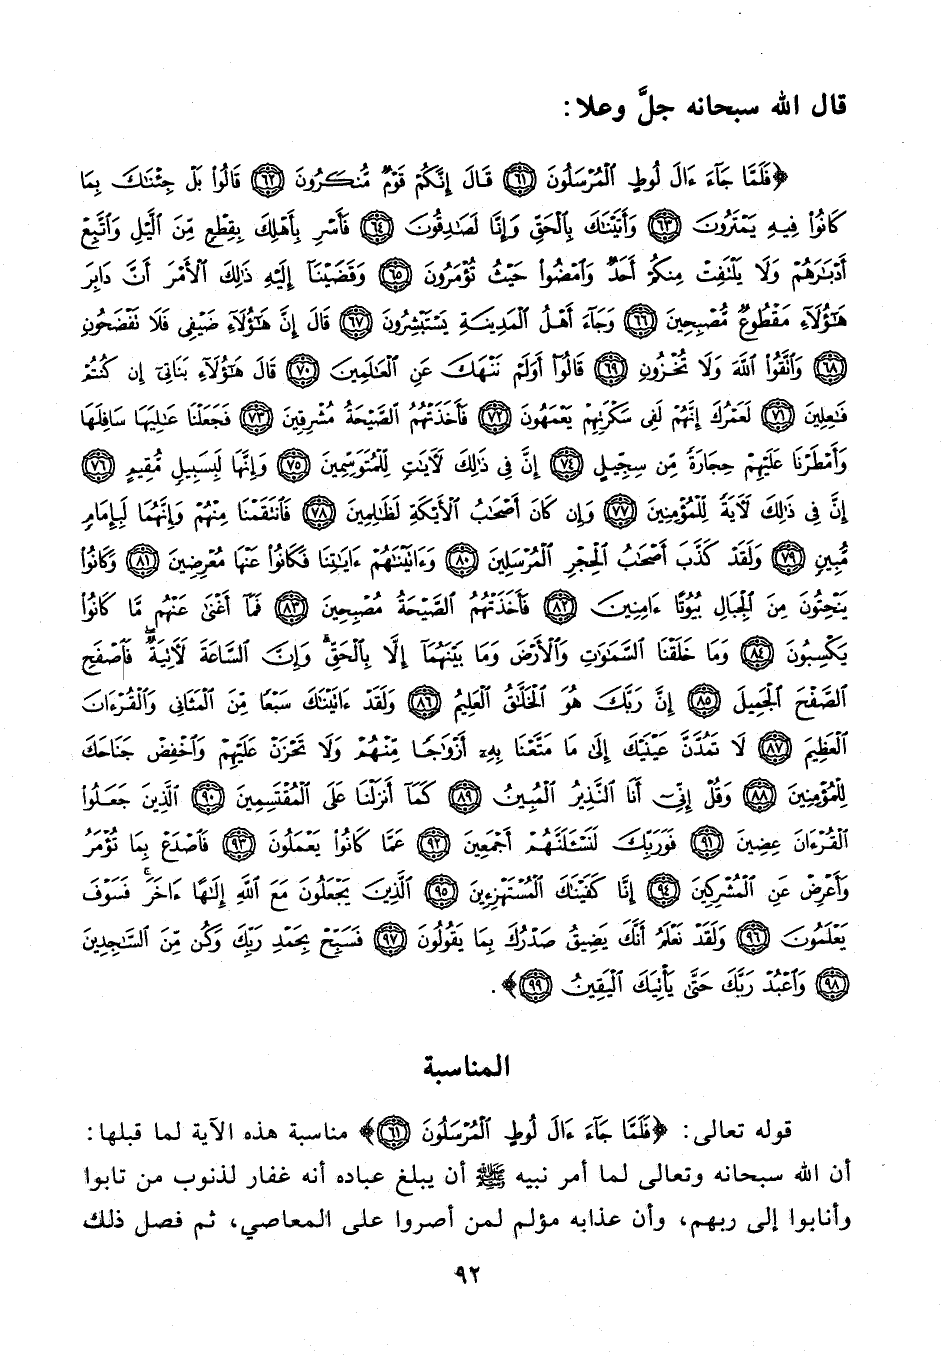 قال الله سبحانه جلَّ وعلا:
﴿فَلَمَّا جَآءَ ءَالَ لُوطٍ ٱلْمُرْسَلُونَ ﴿٦١﴾ قَالَ إِنَّكُمْ قَوْمٌ مُّنكَرُونَ ﴿٦٢﴾ قَالُوا۟ بَلْ جِئْنَٰكَ بِمَا
كَانُوا۟ فِيهِ يَمْتَرُونَ ﴿٦٣﴾ وَأَتَيْنَٰكَ بِٱلْحَقِّ وَإِنَّا لَصَٰدِقُونَ ﴿٦٤﴾ فَأَسْرِ بِأَهْلِكَ بِقِطْعٍ مِّنَ ٱلَّيْلِ وَٱتَّبِعْ
أَدْبَٰرَهُمْ وَلَا يَلْتَفِتْ مِنكُمْ أَحَدٌ وَٱمْضُوا۟ حَيْثُ تُؤْمَرُونَ ﴿٦٥﴾ وَقَضَيْنَآ إِلَيْهِ ذَٰلِكَ ٱلْأَمْرَ أَنَّ دَابِرَ
هَٰٓؤُلَآءِ مَقْطُوعٌ مُّصْبِحِينَ ﴿٦٦﴾ وَجَآءَ أَهْلُ ٱلْمَدِينَةِ يَسْتَبْشِرُونَ ﴿٦٧﴾ قَالَ إِنَّ هَٰٓؤُلَآءِ ضَيْفِى فَلَا تَفْضَحُونِ
﴿٦٨﴾ وَٱتَّقُوا۟ ٱللَّهَ وَلَا تُخْزُونِ ﴿٦٩﴾ قَالُوٓا۟ أَوَلَمْ نَنْهَكَ عَنِ ٱلْعَٰلَمِينَ ﴿٧٠﴾ قَالَ هَٰٓؤُلَآءِ بَنَاتِىٓ إِن كُنتُمْ
فَٰعِلِينَ ﴿٧١﴾ لَعَمْرُكَ إِنَّهُمْ لَفِى سَكْرَتِهِمْ يَعْمَهُونَ ﴿٧٢﴾ فَأَخَذَتْهُمُ ٱلصَّيْحَةُ مُشْرِقِينَ ﴿٧٣﴾ فَجَعَلْنَا عَٰلِيَهَا سَافِلَهَا
وَأَمْطَرْنَا عَلَيْهِمْ حِجَارَةً مِّن سِجِّيلٍ ﴿٧٤﴾ إِنَّ فِى ذَٰلِكَ لَءَايَٰتٍ لِّلْمُتَوَسِّمِينَ ﴿٧٥﴾ وَإِنَّهَا لَبِسَبِيلٍ مُّقِيمٍ ﴿٧٦﴾
إِنَّ فِى ذَٰلِكَ لَءَايَةً لِّلْمُؤْمِنِينَ ﴿٧٧﴾ وَإِن كَانَ أَصْحَٰبُ ٱلْأَيْكَةِ لَظَٰلِمِينَ ﴿٧٨﴾ فَٱنتَقَمْنَا مِنْهُمْ وَإِنَّهُمَا لَبِإِمَامٍ
مُّبِينٍ ﴿٧٩﴾ وَلَقَدْ كَذَّبَ أَصْحَٰبُ ٱلْحِجْرِ ٱلْمُرْسَلِينَ ﴿٨٠﴾ وَءَاتَيْنَٰهُمْ ءَايَٰتِنَا فَكَانُوا۟ عَنْهَا مُعْرِضِينَ ﴿٨١﴾ وَكَانُوا۟
يَنْحِتُونَ مِنَ ٱلْجِبَالِ بُيُوتًا ءَامِنِينَ ﴿٨٢﴾ فَأَخَذَتْهُمُ ٱلصَّيْحَةُ مُصْبِحِينَ ﴿٨٣﴾ فَمَآ أَغْنَىٰ عَنْهُم مَّا كَانُوا۟
يَكْسِبُونَ ﴿٨٤﴾ وَمَا خَلَقْنَا ٱلسَّمَٰوَٰتِ وَٱلْأَرْضَ وَمَا بَيْنَهُمَآ إِلَّا بِٱلْحَقِّ ۗ وَإِنَّ ٱلسَّاعَةَ لَءَاتِيَةٌ ۖ فَٱصْفَحِ
ٱلصَّفْحَ ٱلْجَمِيلَ ﴿٨٥﴾ إِنَّ رَبَّكَ هُوَ ٱلْخَلَّٰقُ ٱلْعَلِيمُ ﴿٨٦﴾ وَلَقَدْ ءَاتَيْنَٰكَ سَبْعًا مِّنَ ٱلْمَثَانِى وَٱلْقُرْءَانَ
ٱلْعَظِيمَ ﴿٨٧﴾ لَا تَمُدَّنَّ عَيْنَيْكَ إِلَىٰ مَا مَتَّعْنَا بِهِۦٓ أَزْوَٰجًا مِّنْهُمْ وَلَا تَحْزَنْ عَلَيْهِمْ وَٱخْفِضْ جَنَاحَكَ
لِلْمُؤْمِنِينَ ﴿٨٨﴾ وَقُلْ إِنِّىٓ أَنَا ٱلنَّذِيرُ ٱلْمُبِينُ ﴿٨٩﴾ كَمَآ أَنزَلْنَا عَلَى ٱلْمُقْتَسِمِينَ ﴿٩٠﴾ ٱلَّذِينَ جَعَلُوا۟
ٱلْقُرْءَانَ عِضِينَ ﴿٩١﴾ فَوَرَبِّكَ لَنَسْـَٔلَنَّهُمْ أَجْمَعِينَ ﴿٩٢﴾ عَمَّا كَانُوا۟ يَعْمَلُونَ ﴿٩٣﴾ فَٱصْدَعْ بِمَا تُؤْمَرُ
وَأَعْرِضْ عَنِ ٱلْمُشْرِكِينَ ﴿٩٤﴾ إِنَّا كَفَيْنَٰكَ ٱلْمُسْتَهْزِءِينَ ﴿٩٥﴾ ٱلَّذِينَ يَجْعَلُونَ مَعَ ٱللَّهِ إِلَٰهًا ءَاخَرَ ۚ فَسَوْفَ
يَعْلَمُونَ ﴿٩٦﴾ وَلَقَدْ نَعْلَمُ أَنَّكَ يَضِيقُ صَدْرُكَ بِمَا يَقُولُونَ ﴿٩٧﴾ فَسَبِّحْ بِحَمْدِ رَبِّكَ وَكُن مِّنَ ٱلسَّٰجِدِينَ
﴿٩٨﴾ وَٱعْبُدْ رَبَّكَ حَتَّىٰ يَأْتِيَكَ ٱلْيَقِينُ ﴿٩٩﴾﴾.
المناسبة
قوله تعالى: ﴿فَلَمَّا جَآءَ ءَالَ لُوطٍ ٱلْمُرْسَلُونَ ﴿٦١﴾﴾ مناسبة هذه الآية لما قبلها:
أن الله سبحانه وتعالى لما أمر نبيه ﷺ أن يبلغ عباده أنه غفار لذنوب من تابوا
وأنابوا إلى ربهم، وأن عذابه مؤلم لمن أصروا على المعاصي، ثم فصل ذلك
٩٢